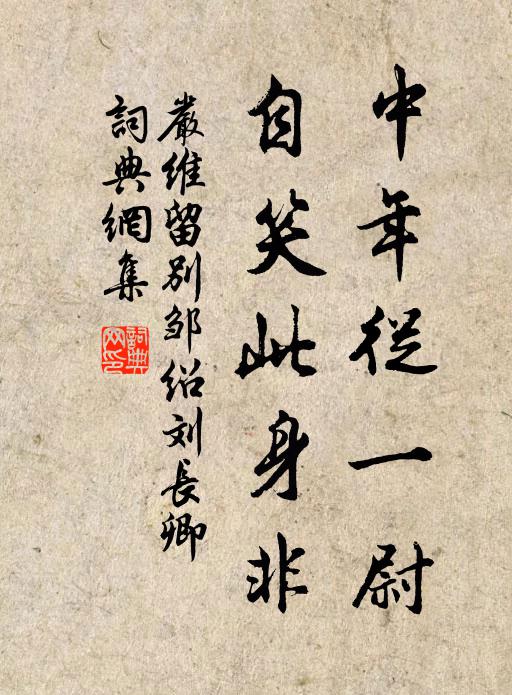 中年從一尉
自笑此身非
嚴維留別邹绍刘長卿
詞典網集
詞典
网印